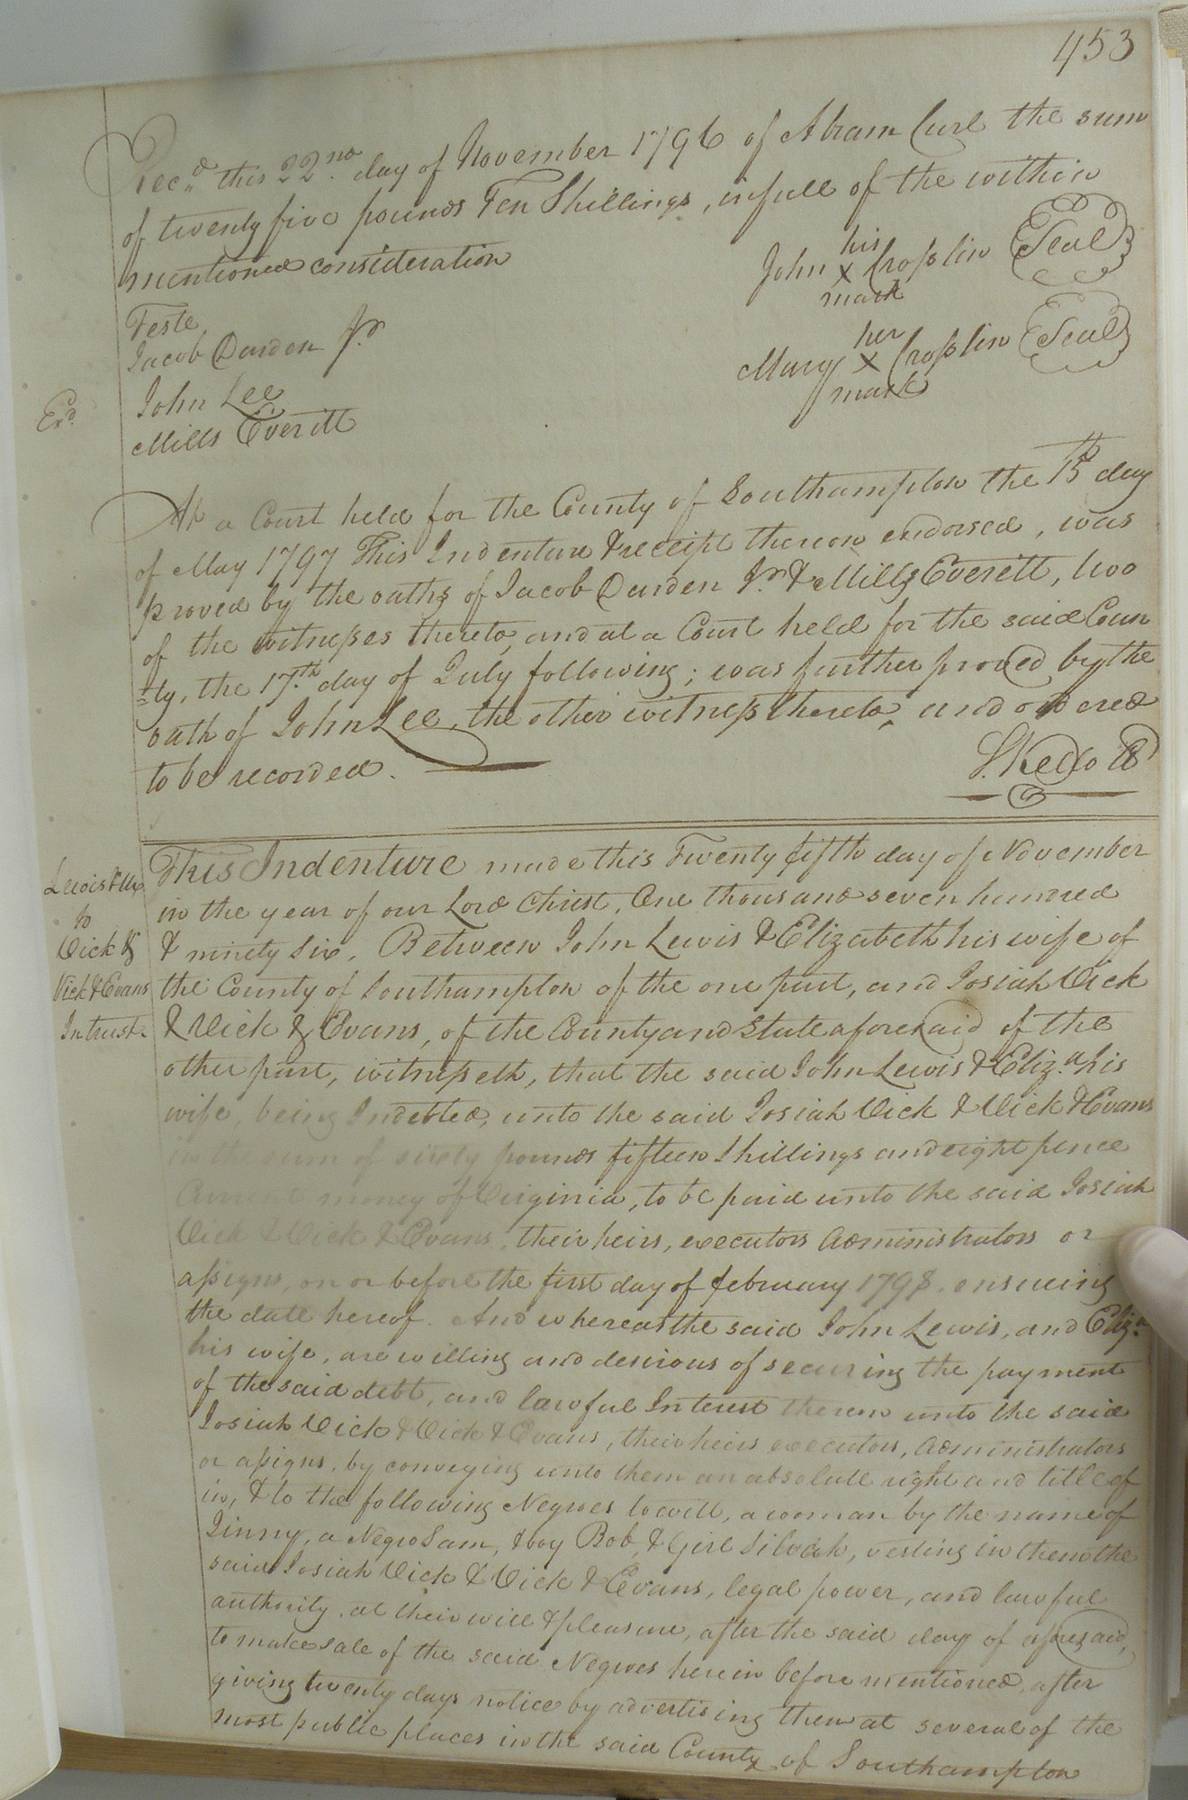 453
Rec.d this 22.nd day of November 1796 of Abram Curl the sum
of twenty five pounds Ten Shillings, in full of the within
mentioned consideration
his
John x Croplin Seal
mark
Teste
Jacob Darden Jr
her
Mary x Croplin Seal
mark
John Lee
Mills Everitt
Ex.d
At a Court held for the County of Southampton the 15th day
of May 1797 This Indenture & receipt thereon endorsed, was
proved by the oaths of Jacob Darden Jr. & Mills Everett, two
of the witnesses thereto, and at a Court held for the said Coun
=ty, the 17.th day of July following; was further proved by the
oath of John Lee, the other witness thereto, and ordered
to be recorded.
S. Kello
Lewis & Ux
to
Vick &
Vick & Evans
In trust
This Indenture made this Twenty fifth day of November
in the year of our Lord Christ, One thousand seven hundred
& ninety Six, Between John Lewis & Elizabeth his wife of
the County of Southampton of the one part, and Josiah Vick
& Vick & Evans, of the County and State aforesaid of the
other part, witnesseth, that the said John Lewis & Eliz.a his
wife, being Indebted, unto the said Josiah Vick & Vick & Evans
in the sum of sixty pounds fifteen Shillings and eight pence
Current money of Virginia, to be paid unto the said Josiah
Vick & Vick & Evans, their heirs, executors Administrators or
assigns, on or before the first day of february 1798. ensueing
the date hereof. And whereas the said John Lewis, and Eliz.a
his wife, are willing and desirous of securing the payment
of the said debt, and lawful Interest thereon unto the said
Josiah Vick & Vick & Evans, their heirs executors, Administrators
or assigns, by conveying unto them an absolute right and title of
in, & to the following Negroes towitt, a woman by the name of
Jinny, a Negro Sam, & boy Bob, & Girl Silvah, vesting in them the
said Josiah Vick & Vick & Evans, legal power, and lawful
authority, at their will & pleasure, after the said day of aforesaid,
to make sale of the said Negroes herein before mentioned, after
giving twenty days notice by advertising them at several of the
most public places in the said County of Southampton